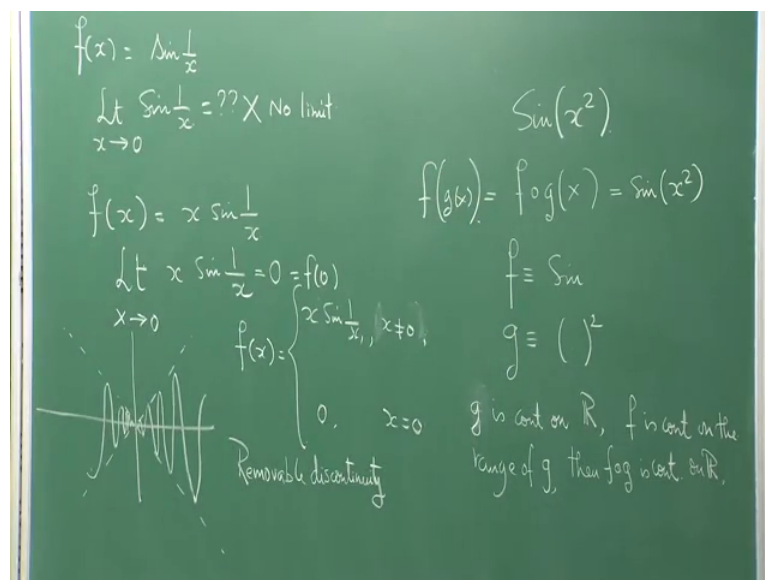 f(x) = Sin 1/x
Lt x→0 Sin 1/x = ?? X No limit
f(x) = x Sin 1/x
Lt x→0 x Sin 1/x = 0 = f(0)
f(x) = { x Sin 1/x, x≠0,
0, x=0
Removable discontinuity
Sin(x²)
f(g(x)) = fog(x) = Sin(x²)
f ≡ Sin
g ≡ ( )²
g is cont on ℝ, f is cont on the
range of g, then fog is cont. on ℝ.